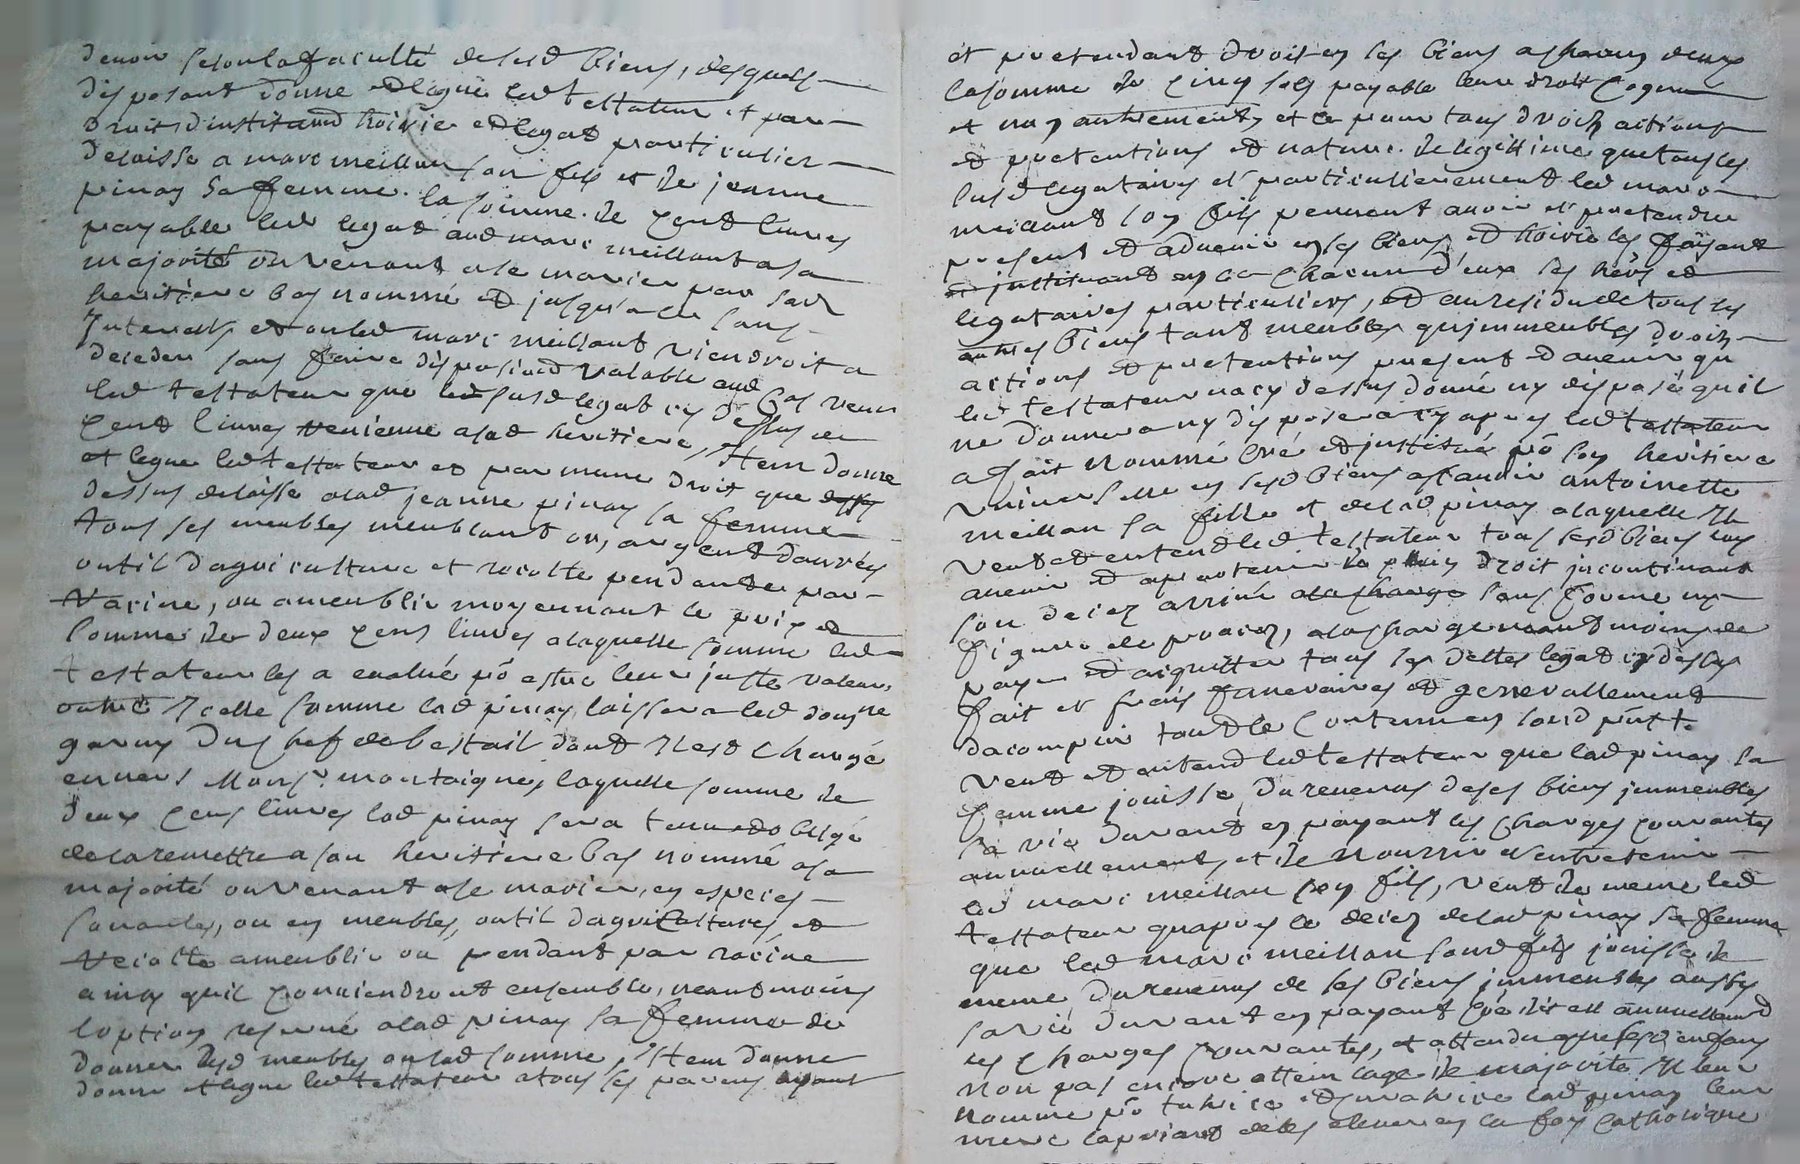 devoir selon la faculté desesd biens, desquels
disposant donne et legue led testateur et par
droit d'institu͞on hoirie et legat particulier
delaisse a marc meillan son fils et de jeanne
pinay sa femme. la somme. de cent livres
payable led legat aud marc meillant a sa
majorité ou venant a se marier par son
heritiere bas nommé et jusqu'a ce sans
Interests et ou led marc meillant viendroit a
deceder sans faire disposi͞on valable aud cas veut
led testateur que led susd legat cy dessus de
cent livres revienne a sad heritiere, Item donne
et legue led testateur et par meme droit que
dessus delaisse a lad jeanne pinay sa femme
tous ses meubles meublant or, argent danrées
outil dagriculture et recolte pendante par
racine, ou ameublie moyennant le prix et
somme de deux cens livres a laquelle somme led
testateur les a evalué po estre leur juste valeur,
outre Icelle somme lad pinay laissera led domaine
garny du chef de bestail dont Il est chargé
envers Monsr montaigne, laquelle somme de
deux cens livres lad pinay sera tenue et obligé
de la remettre a son heritiere bas nommé a sa
majorité ou venant a se marier, en especes
sonantes, ou en meubles, outil dagriculture, et
recolte ameublie ou pendant par racine
ainsy quil conviendront ensemble, neantmoins
loption reservé a lad pinay sa femme de
donner lesd meubles ou lad somme, Item donne
donne et legue led testateur a tous ses parens ayant
et pretendant droit en ses biens a chacun deux
la somme de cinq sols payable leur droit
et non autrement, et ce pour tous droits actions
et pretentions et nature. de legitime que tous les
susd legataires et particulierement led marc
meillant son fils peuvent avoir et pretendre
present et advenir en ses biens et hoirie les faisant
et instituant en ce chacun d'eux ses hers et
legataires particuliers, et au residu de tous ses
autres biens tant meubles qu'immeubles droits
actions et pretentions present et avenir qu
led testateur na cy dessus donné ny disposé quil
ne donnera ny disposera cy apres led testateur
a fait nommé créé et institué po son heritiere
universelle en sesd biens a scavoir antoinette
meillan sa fille et de lad pinay a laquelle Il
veut et entend led testateur tous sesd biens
avenir et apartenir de plein droit incontinant
son decez arrivé sans forme ny
figure de procez, a la charge neantmoins de
payer et aquitter tous ses dettes legat cy dessus
fait et frais funeraires et generallement
dacomplir tout le contenu en sond pnt t.
Veut et entend led testateur que lad pinay sa
femme jouisse, du revenus de ses biens jmmeubles
sa vie durant en payant les charges courantes
annuellement, et de nourrir et entretenir
led marc meillan son fils, veut de meme led
testateur quapres le decez de lad pinay sa femme
que led marc meillan sond fils jouisse de
meme du revenus de ses biens jmmeubles aussy
sa vie durant en payant annuellement
les charges courantes, et attendu que sesd enfans
non pas encore attein lage de majorité Il leur
nomme po tutrice et curatrice lad pinay leur
mere la priant de les elever en la foy catholique